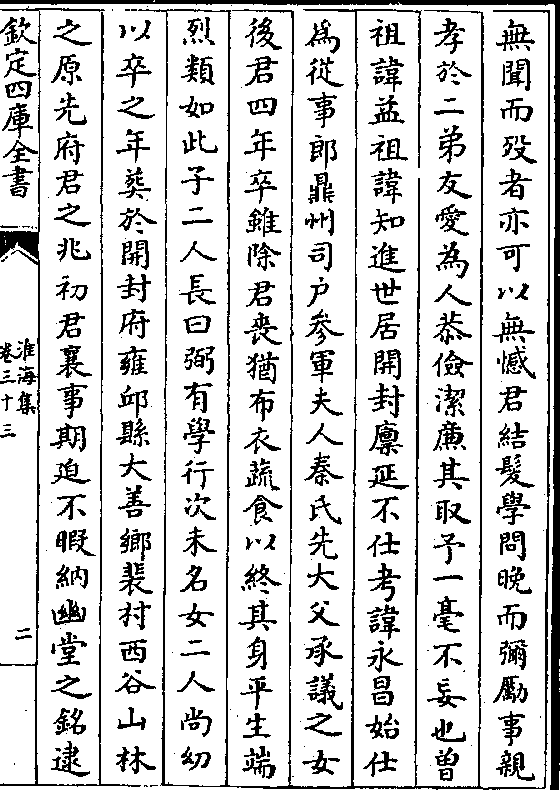 無聞而歿者亦可以無憾君結髮學問晚而彌勵事親
孝於二弟友愛為人恭儉潔廉其取予一毫不妄也曽
祖諱益祖諱知進世居開封廪延不仕考諱永昌始仕
為從事郎鼎州司户參軍夫人秦氏先大父承議之女
後君四年卒雖除君喪猶布衣蔬食以終其身平生端
烈類如此子二人長曰弼有學行次未名女二人尚幼
以卒之年葬於開封府雍邱縣大善鄉裴村西谷山林
之原先府君之兆初君襄事期迫不暇納幽堂之銘逮
欽定四庫全書
淮海集
卷三十三
二